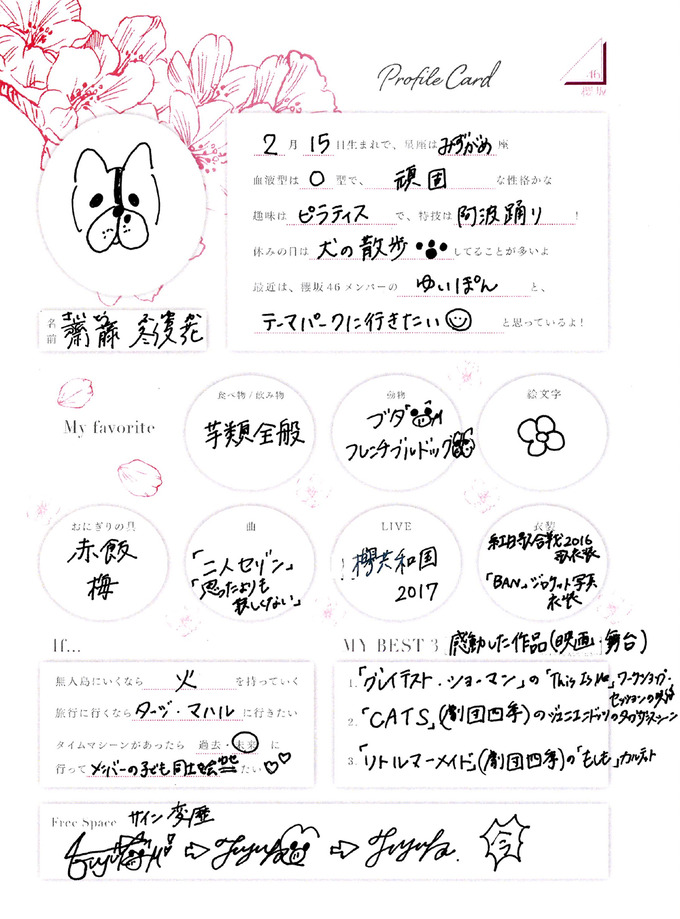 Profile Card
46
櫻坂
2月15日生まれで、星座はみずがめ座
血液型はO型で、頑固な性格かな
趣味はピラティスで、特技は阿波踊り！
休みの日は犬の散歩してることが多いよ
最近は、櫻坂46メンバーのゆいぽんと、
テーマパークに行きたいと思っているよ！
さいとう ふゆか
名前 齋藤 冬優花
My favorite
食べ物/飲み物
芋類全般
動物
ブタ
フレンチブルドッグ
絵文字
おにぎりの具
赤飯
梅
曲
「二人セゾン」
「思ったよりも
寂しくない」
LIVE
欅共和国
2017
衣装
紅白歌合戦2016
衣装
「BAN」ジャケット写真
衣装
If...
無人島にいくなら火を持っていく
旅行に行くならタージ・マハルに行きたい
タイムマシーンがあったら 過去・未来 に
行ってメンバーの子ども同士会わせたい
MY BEST 3 感動した作品(映画・舞台)
1.「グレイテスト・ショーマン」の「This Is Me」ワークショップ・
セッションの映像
2.「CATS」(劇団四季)のジェニエニドッツのタップダンスシーン
3.「リトルマーメイド」(劇団四季)の「もしも」カルテット
Free Space サイン変歴
⇨ Fuyuka ⇨ Fuyuka.